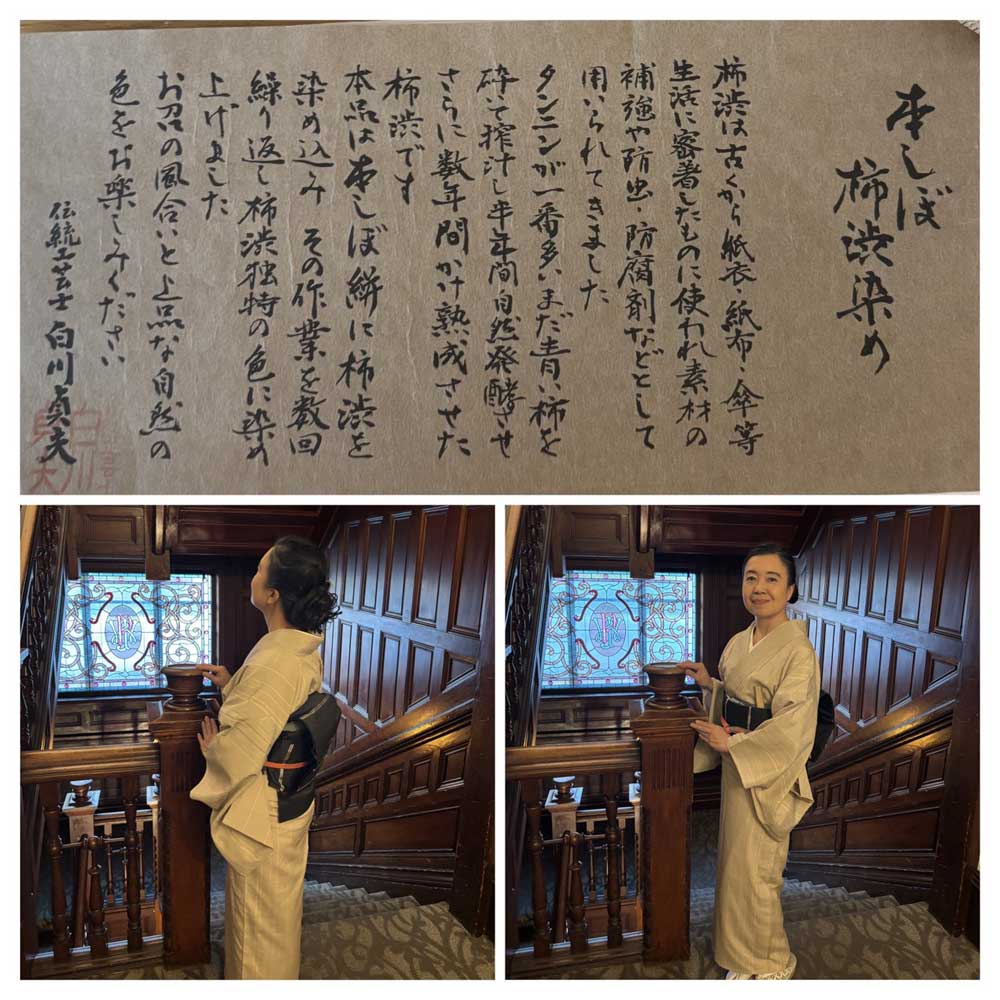 本しぼ
柿渋染め
柿渋は古くから紙衣・紙布・傘等
生活に密着したものに使われ素材の
補強や防虫・防腐剤などとして
用いられてきました
タンニンが一番多いまだ青い柿を
砕いて搾汁し半年間自然発酵させ
さらに数年間かけ熟成させた
柿渋です
本品は本しぼ絣に柿渋を
染め込み その作業を数回
繰り返し柿渋独特の色に染め
上げました
お召の風合いと上品な自然の
色をお楽しみください
伝統工芸士 白川貞夫